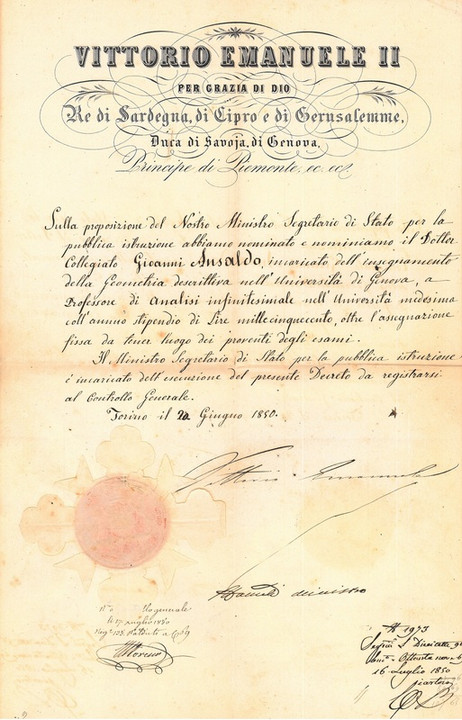 VITTORIO EMANUELE II
PER GRAZIA DI DIO
Re di Sardegna, di Cipro e di Gerusalemme,
Duca di Savoja, di Genova,
Principe di Piemonte, ec. ec.
Sulla proposizione del Nostro Ministro Segretario di Stato per la
pubblica istruzione abbiamo nominato e nominiamo il Dottor
Collegiato Giovanni Ansaldo, incaricato dell'insegnamento
della Geometria descrittiva nell'Università di Genova, a
Professore di Analisi infinitesimale nell'Università medesima
coll'annuo stipendio di Lire millecinquecento, oltre l'assegnazione
fissa da tener luogo dei proventi degli esami.
Il Ministro Segretario di Stato per la pubblica istruzione
è incaricato dell'esecuzione del presente Decreto da registrarsi
al Controllo Generale.
Torino il 20 Giugno 1850.
Vittorio Emanuele
generale
1850
1973
16 Luglio 1850